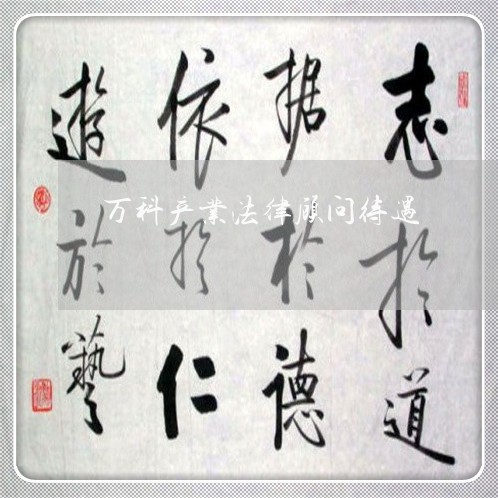 志於道
据於德
依於仁
遊於藝
万科产業法律顾问待遇